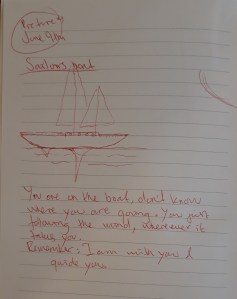 Picture 4
June 9th
Sailors boat
You are on the boat, don't know
where you are going. You just
following the wind, wherever it
takes you.
Remember: I am with you I
guide you.